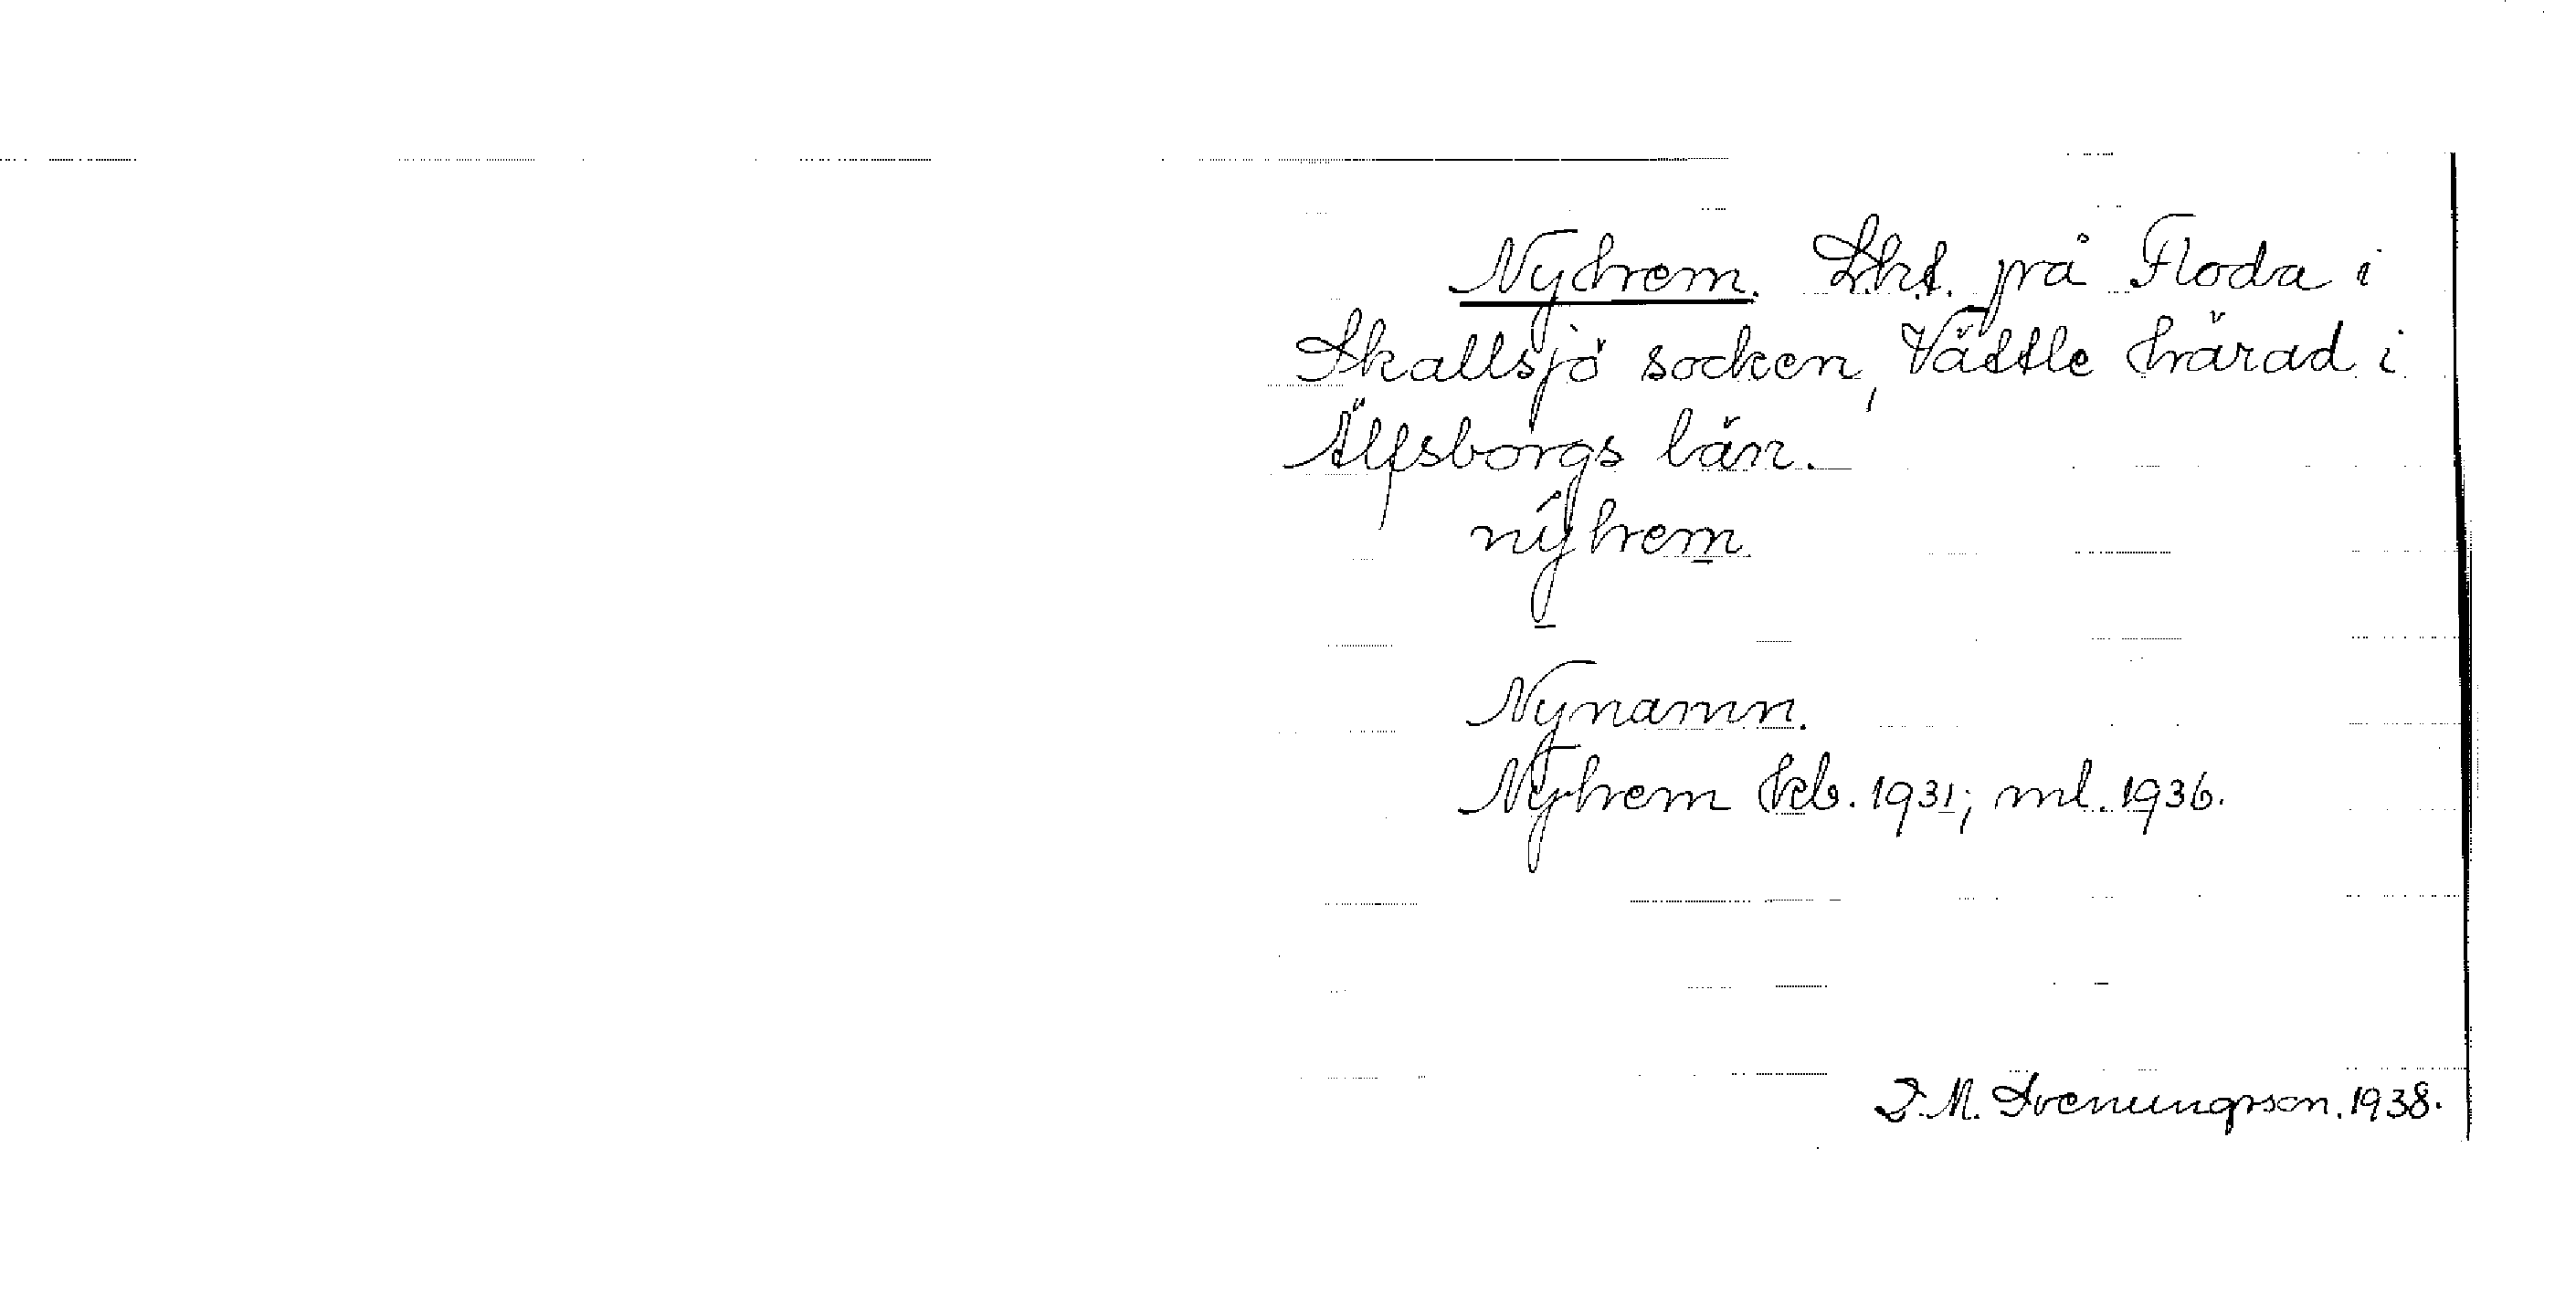 Nyhem. Lht. på Floda i
Skallsjö socken, Vättle härad i
Älfsborgs län.
nýhem
Nynamn.
Nyhem kb. 1931; ml. 1936.
J. M. Svenungsson. 1938.